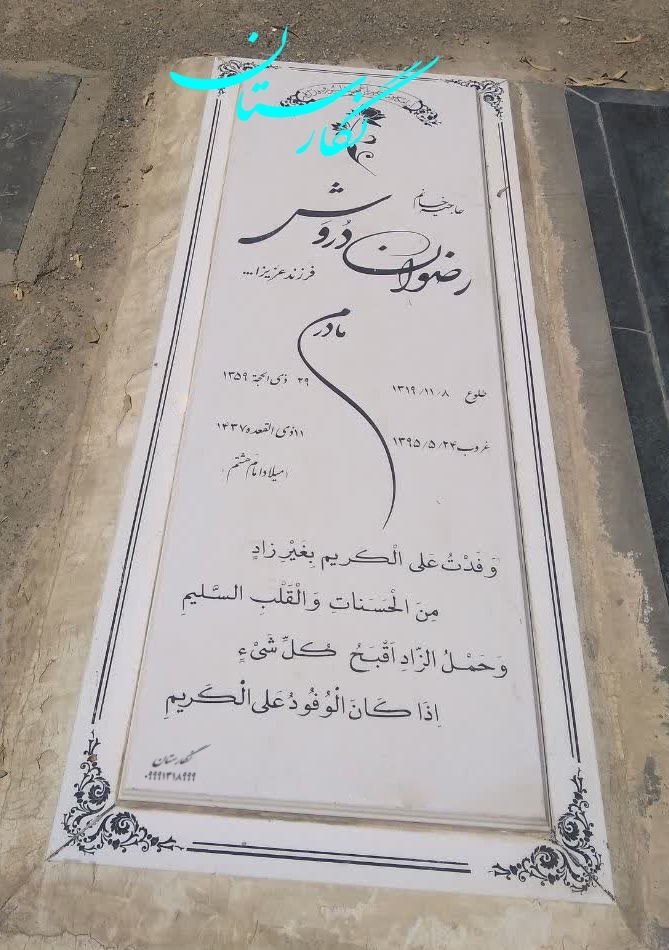 نگارستان
حاجیه خانم
رضوان دُروَش
فرزند عزیز ا...
مادرم
طلوع ۱۳۱۹/۱۱/۸ ۲۹ ذی الحجة ۱۳۵۹
غروب ۱۳۹۵/۵/۲۴ ۱۱ ذی القعده ۱۴۳۷
(میلاد امام هشتم)
وَفَدْتُ عَلی الْکَریمِ بِغَیْرِ زادٍ
مِنَ الْحَسَناتِ وَ الْقَلْبِ السَّلیمِ
وَ حَمْلُ الزّادِ اَقْبَحُ کُلِّ شَیْءٍ
اِذَا کَانَ الْوُفُودُ عَلی الْکَریمِ
نگارستان
۰۹۹۹۱۳۱۸۹۹۹